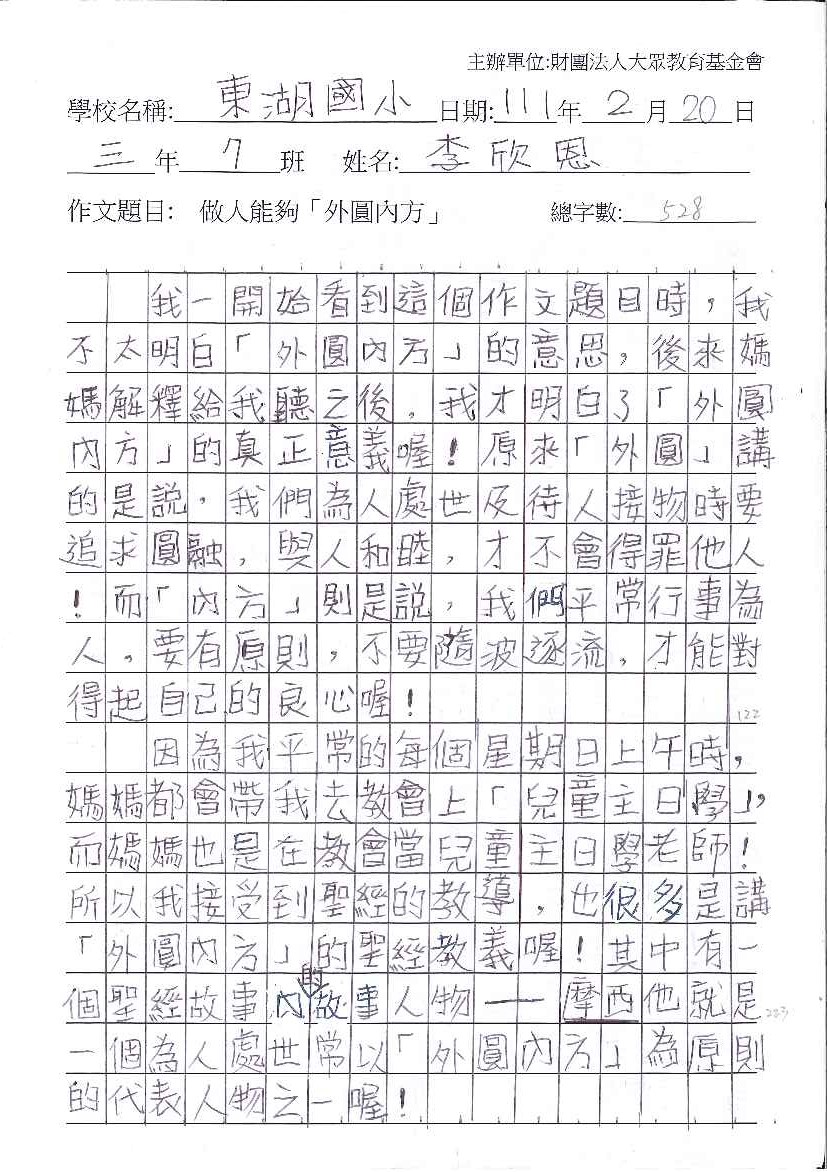 主辦單位:財團法人大眾教育基金會
學校名稱:東湖國小日期:111年2月20日
三年7班 姓名:李欣恩
作文題目: 做人能夠「外圓內方」 總字數:528
我一開始看到這個作文題目時,我
不太明白「外圓內方」的意思,後來媽
媽解釋給我聽之後,我才明白了「外圓
內方」的真正意義喔!原來「外圓」講
的是說,我們為人處世及待人接物時要
追求圓融,與人和睦,才不會得罪他人
!而「內方」則是說,我們平常行事為
人,要有原則,不要隨波逐流,才能對
得起自己的良心喔!
122
因為我平常的每個星期日上午時,
媽媽都會帶我去教會上「兒童主日學」,
而媽媽也是在教會當兒童主日學老師!
所以我接受到聖經的教導,也很多是講
「外圓內方」的聖經教義喔!其中有一
個聖經故事內的故事人物——摩西他就是
223
一個為人處世常以「外圓內方」為原則
的代表人物之一喔!